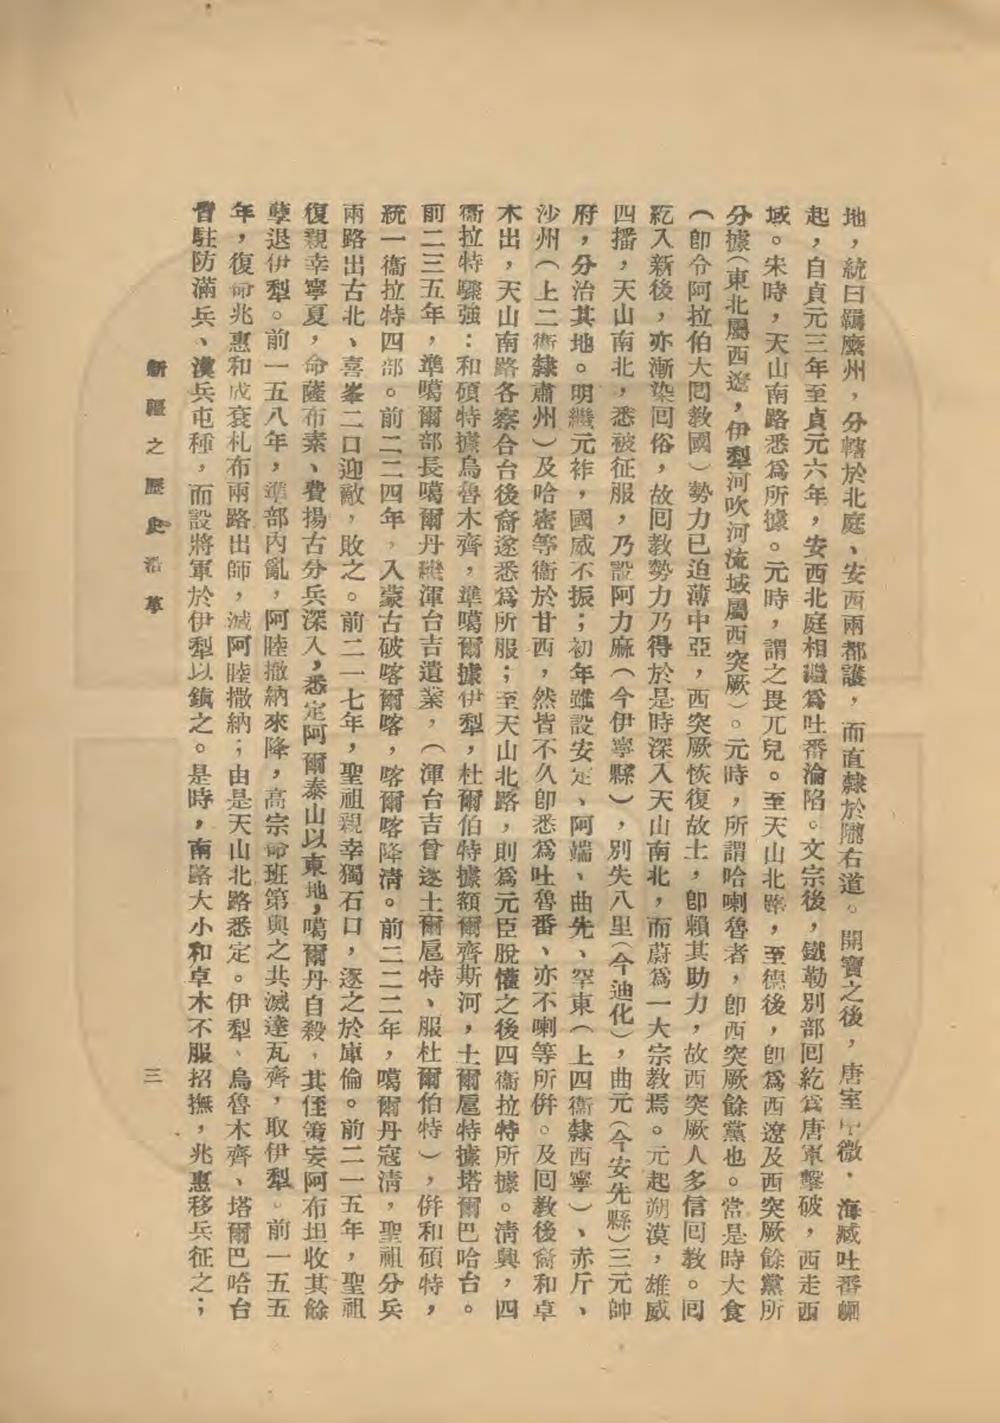 地，統曰羈縻州，分轄於北庭、安西兩都護，而直隸於隴右道。開寶之後，唐室中微，海臧吐番崛
起，自貞元三年至貞元六年，安西北庭相繼爲吐番淪陷。文宗後，鐵勒別部囘紇爲唐軍擊破，西走西
域。宋時，天山南路悉爲所據。元時，謂之畏兀兒。至天山北路，至德後，卽爲西遼及西突厥餘黨所
分據（東北屬西遼，伊犂河吹河流域屬西突厥）。元時，所謂哈喇魯者，卽西突厥餘黨也。當是時大食
（卽今阿拉伯大囘敎國）勢力已迫薄中亞，西突厥恢復故土，卽賴其助力，故西突厥人多信囘敎。囘
紇入新後，亦漸染囘俗，故囘敎勢力乃得於是時深入天山南北，而蔚爲一大宗敎焉。元起朔漠，雄威
四播，天山南北，悉被征服，乃設阿力麻（今伊寧縣），別失八里（今迪化），曲元（今安先縣）三元帥
府，分治其地。明繼元祚，國威不振；初年雖設安定、阿端、曲先、罕東（上四衞隸西寧）、赤斤、
沙州（上二衞隸肅州）及哈密等衞於甘西，然皆不久卽悉爲吐魯番、亦不喇等所倂。及囘敎後裔和卓
木出，天山南路各察合台後裔遂悉爲所服；至天山北路，則爲元臣脫懽之後四衞拉特所據。淸興，四
衞拉特驟強：和碩特據烏魯木齊，準噶爾據伊犂，杜爾伯特據額爾齊斯河，土爾扈特據塔爾巴哈台。
前二三五年，準噶爾部長噶爾丹繼渾台吉遺業，（渾台吉曾逐土爾扈特、服杜爾伯特），倂和碩特，
統一衞拉特四部。前二二四年，入蒙古破喀爾喀，喀爾喀降淸。前二二二年，噶爾丹寇淸，聖祖分兵
兩路出古北、喜峯二口迎敵，敗之。前二一七年，聖祖親幸獨石口，逐之於庫倫。前二一五年，聖祖
復親幸寧夏，命薩布素、費揚古分兵深入，悉定阿爾泰山以東地，噶爾丹自殺，其侄策妄阿布坦收其餘
孽退伊犂。前一五八年，準部內亂，阿睦撒納來降，高宗命班第與之共滅達瓦齊，取伊犂。前一五五
年，復命兆惠和成袞札布兩路出師，滅阿睦撒納；由是天山北路悉定。伊犂、烏魯木齊、塔爾巴哈台
皆駐防滿兵、漢兵屯種，而設將軍於伊犂以鎮之。是時，南路大小和卓木不服招撫，兆惠移兵征之；
新疆之歷史沿革
三